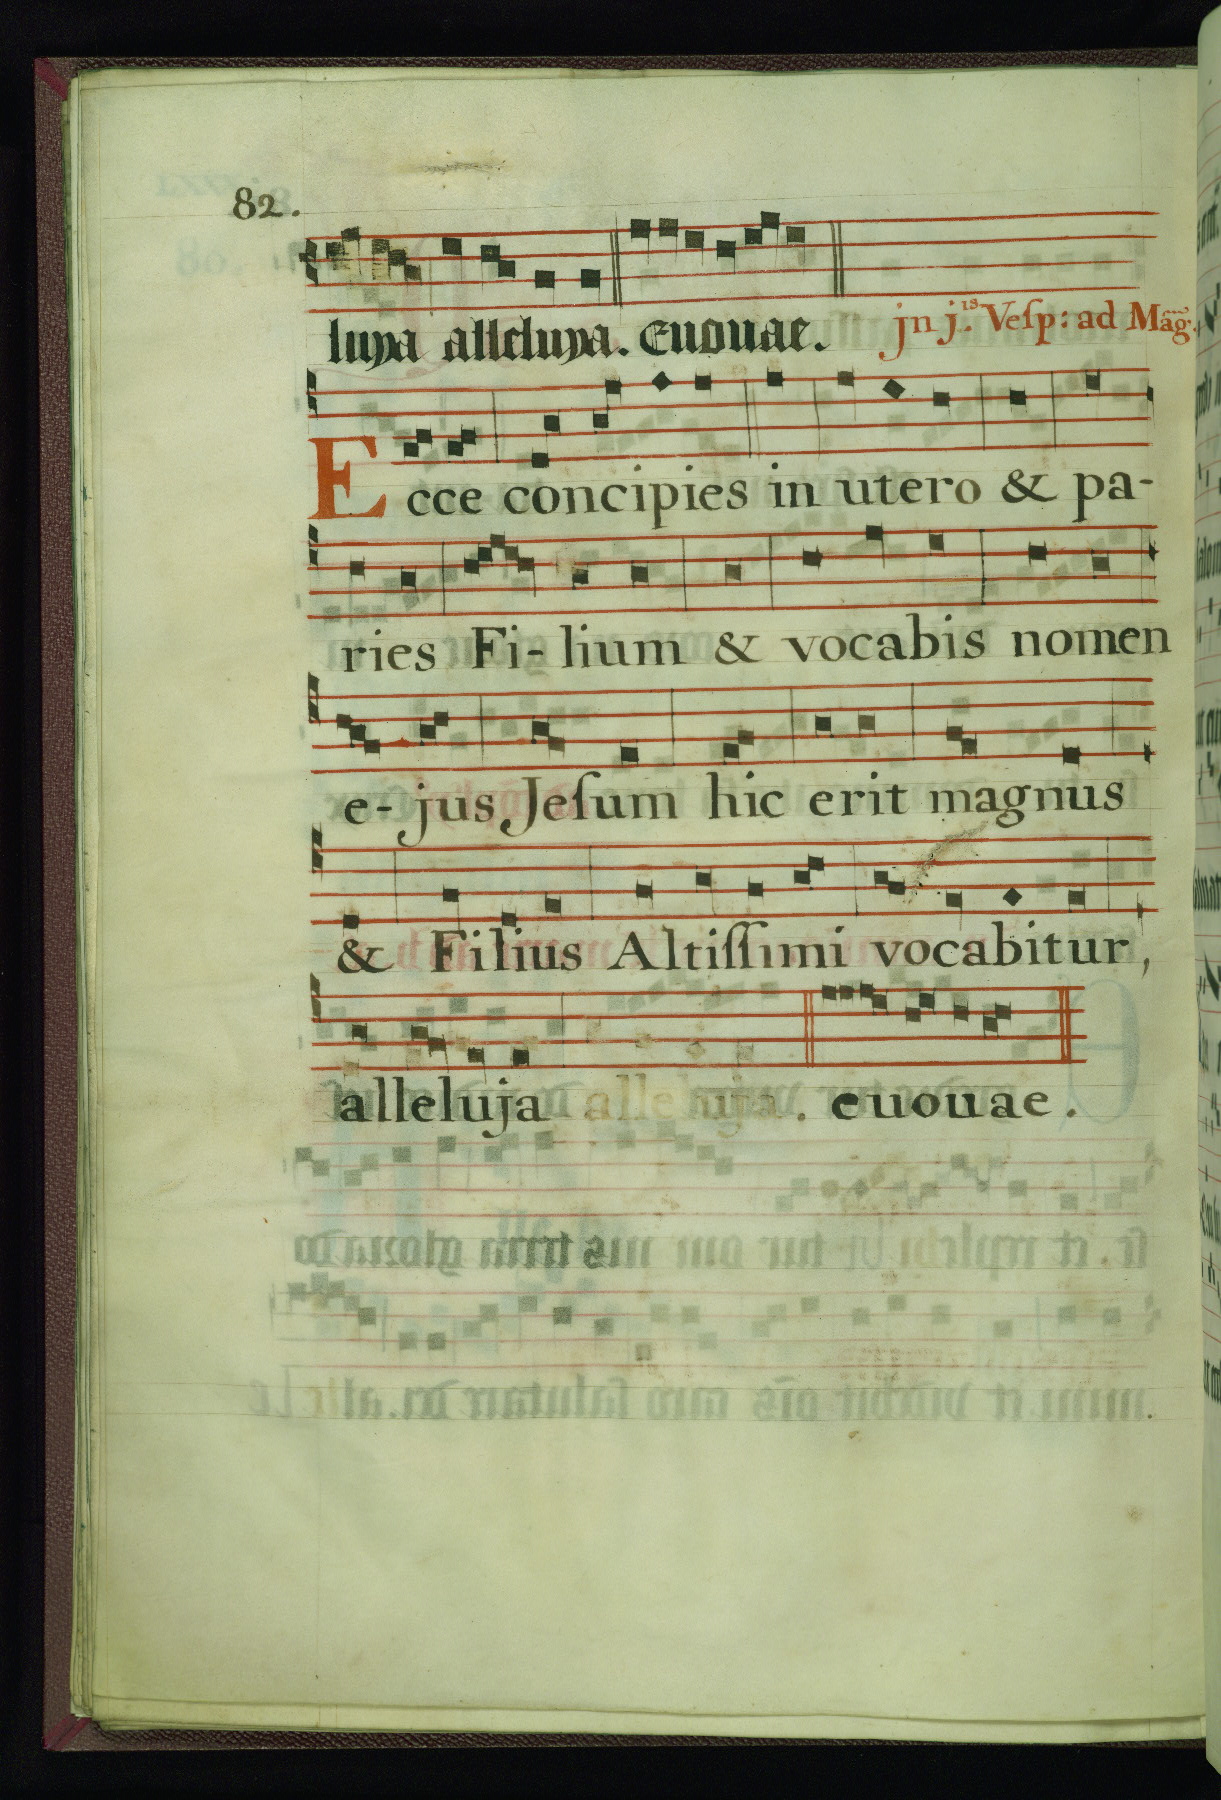 82.
luya alleluya. Euouae. jn j.is Veſp: ad Mag̃.
Ecce concipies in utero & pa-
ries Fi-lium & vocabis nomen
e-jus Jeſum hic erit magnus
& Filius Altiſſimi vocabitur,
alleluja alleluja. euouae.